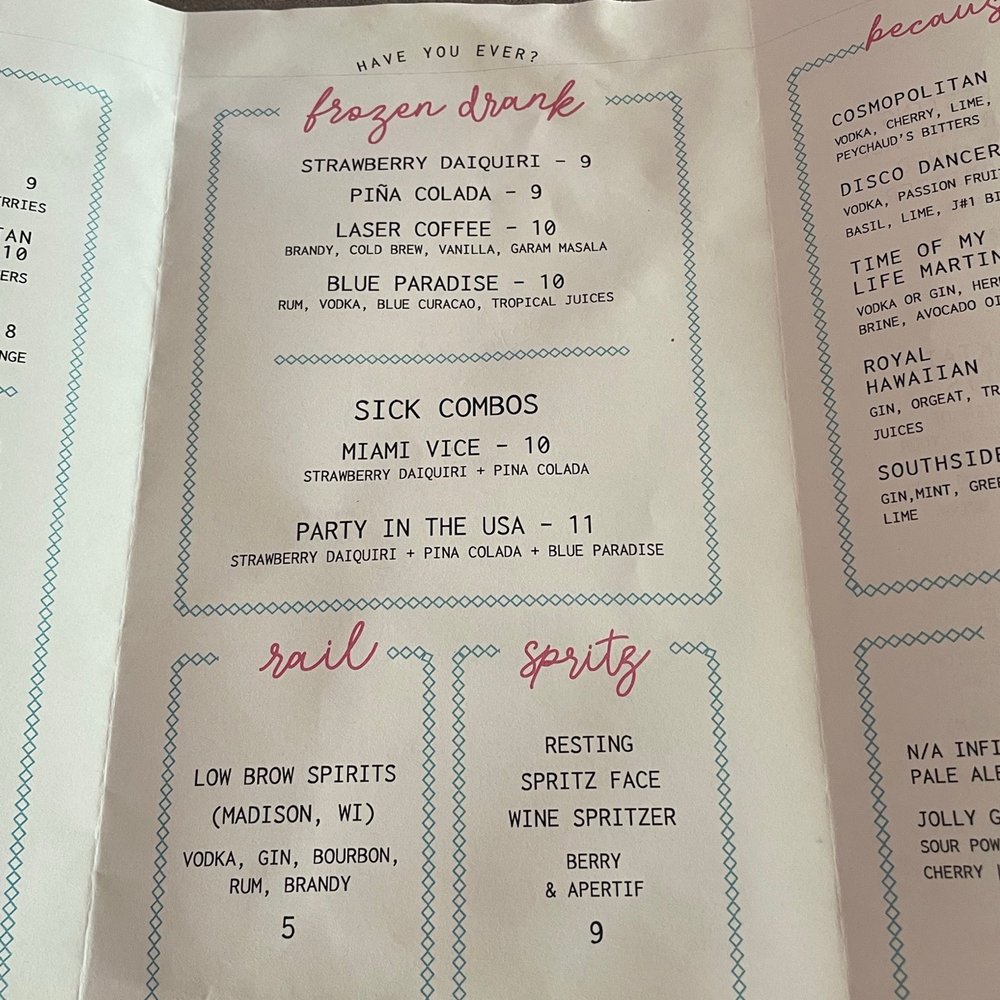 9
10
8
HAVE YOU EVER?
frozen drank
STRAWBERRY DAIQUIRI - 9
PIÑA COLADA - 9
LASER COFFEE - 10
BRANDY, COLD BREW, VANILLA, GARAM MASALA
BLUE PARADISE - 10
RUM, VODKA, BLUE CURACAO, TROPICAL JUICES
SICK COMBOS
MIAMI VICE - 10
STRAWBERRY DAIQUIRI + PINA COLADA
PARTY IN THE USA - 11
STRAWBERRY DAIQUIRI + PINA COLADA + BLUE PARADISE
rail
LOW BROW SPIRITS
(MADISON, WI)
VODKA, GIN, BOURBON,
RUM, BRANDY
5
spritz
RESTING
SPRITZ FACE
WINE SPRITZER
BERRY
& APERTIF
9
COSMOPOLITAN
VODKA, CHERRY, LIME,
PEYCHAUD'S BITTERS
DISCO DANCER
VODKA, PASSION
BASIL, LIME, J#1
TIME OF MY
LIFE
VODKA OR GIN,
BRINE, AVOCADO
ROYAL
HAWAIIAN
GIN, ORGEAT,
JUICES
SOUTHSIDE
GIN,MINT,
LIME
N/A
PALE ALE
JOLLY
SOUR
CHERRY